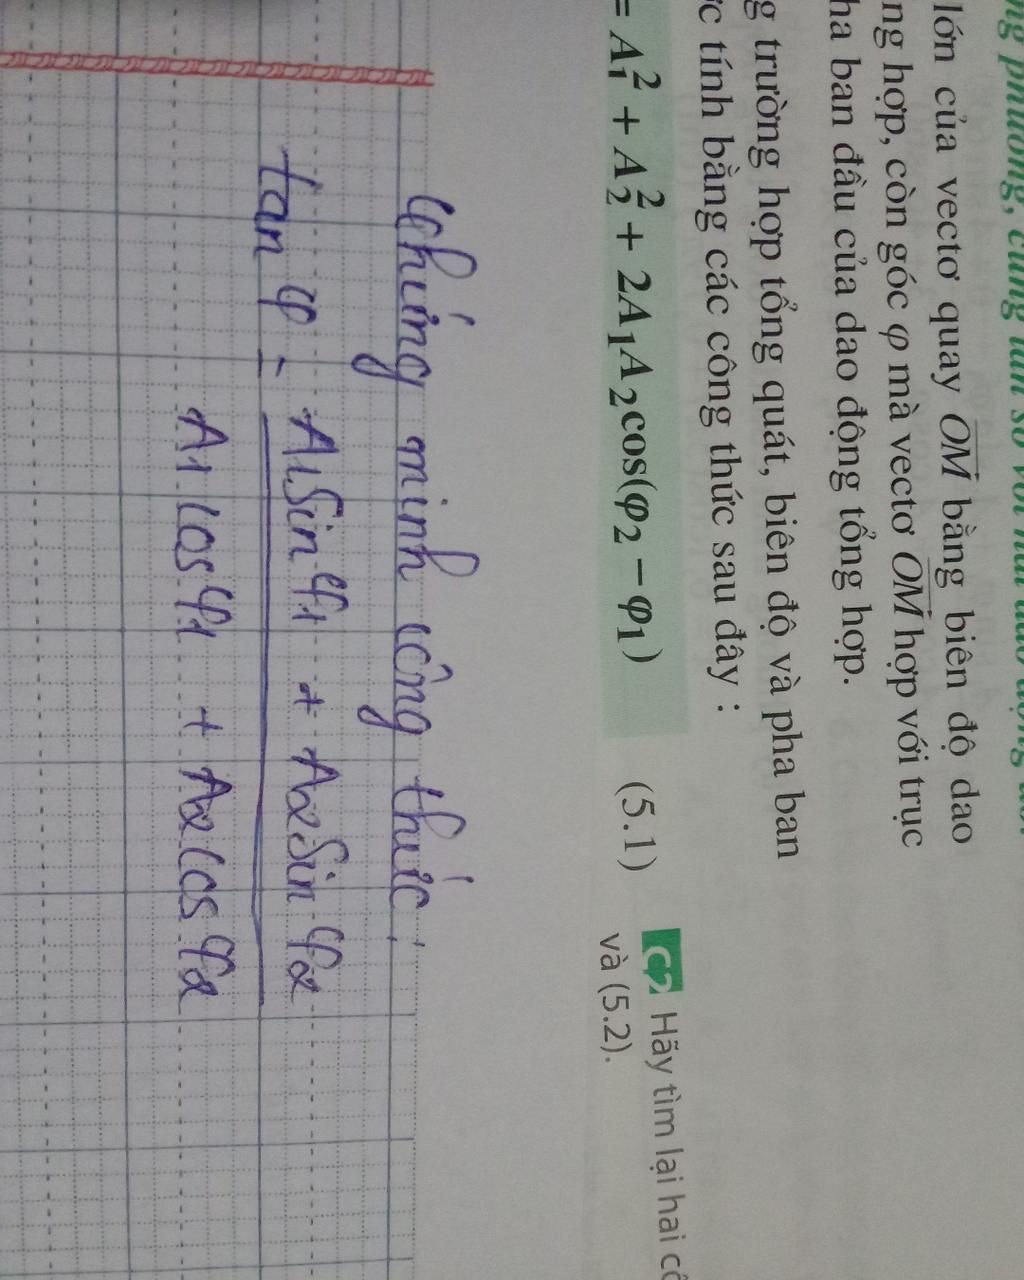 lớn của vectơ quay OM bằng biên độ dao
hợp, còn góc φ mà vectơ OM hợp với trục
ban đầu của dao động tổng hợp.
trường hợp tổng quát, biên độ và pha ban
tính bằng các công thức sau đây :
= A₁² + A₂² + 2A₁A₂cos(φ₂ − φ₁) (5.1)
C2 Hãy tìm lại hai
và (5.2).
Chứng minh công thức:
tan φ = A₁ sin φ₁ + A₂ sin φ₂
A₁ cos φ₁ + A₂ cos φ₂